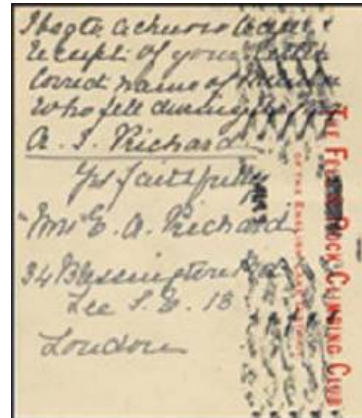 I beg to acknowledge
Receipt of your letter
Correct name of
who fell during the
A. J. Prichard
Yrs faithfully
Mrs E. A. Prichard
34 Blessington Rd
Lee S. E. 13
London
THE FELL & ROCK CLIMBING CLUB
OF THE ENGLISH LAKE DISTRICT